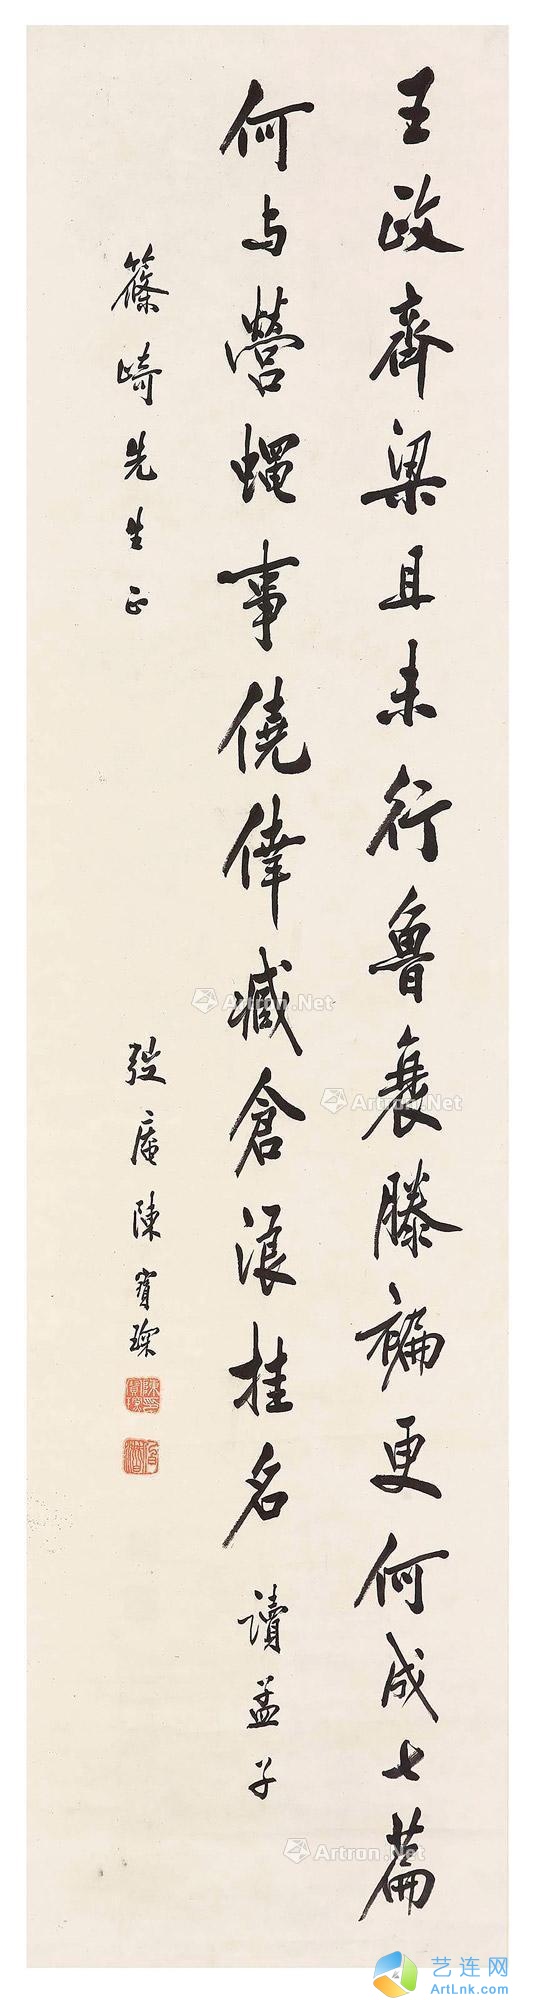 王政齊梁且未行魯衰滕褊更何成七篇
何与營蝇事僥倖臧倉浪挂名讀孟子
篠崎先生正
弢庵陳寶琛
Artron.Net
Artron.Net
Artron.Net
艺连网
ArtLnk.com